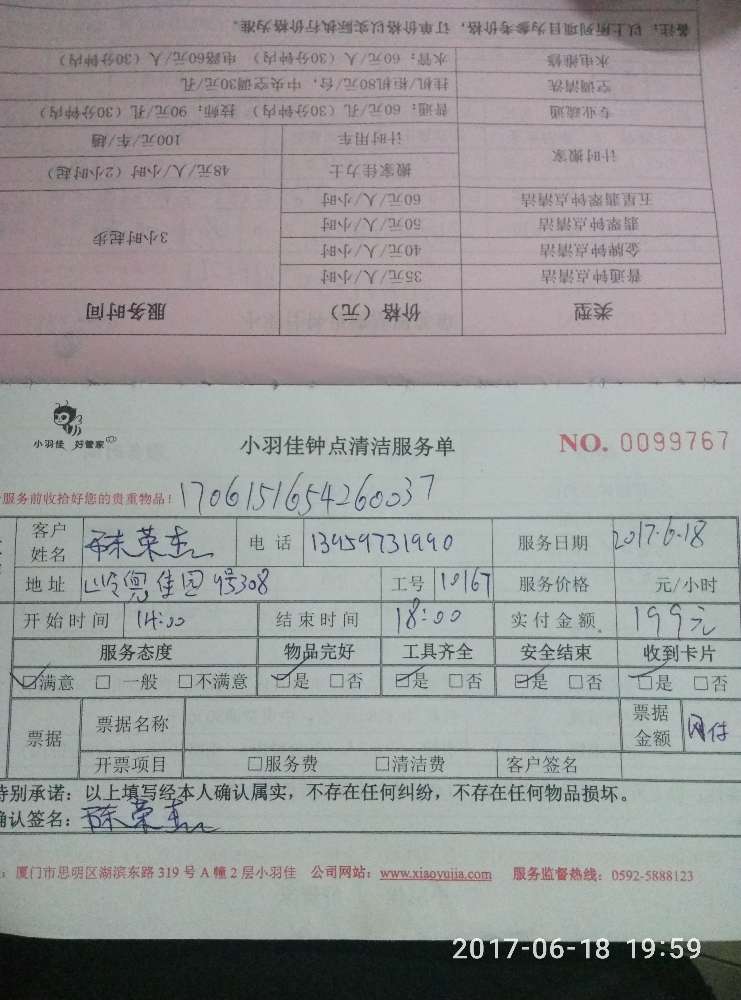 备注：以上所列项目为参考价格，订单价格以实际执行价格为准。
水电维修 水管：60元/人（30分钟内） 电路60元/人（30分钟内）
空调清洗 挂机/柜机80元/台，中央空调30元/孔
专业疏通 普通：60元/孔（30分钟内） 技师：90元/孔（30分钟内）
计时搬家 计时用车 100元/车/趟
搬家佳力士 48元/人/小时（2小时起）
五星翡翠钟点清洁 60元/人/小时
翡翠钟点清洁 50元/人/小时 3小时起步
金牌钟点清洁 40元/人/小时
普通钟点清洁 35元/人/小时
类型 价格（元） 服务时间
小羽佳 好管家
小羽佳钟点清洁服务单 NO. 0099767
服务前收拾好您的贵重物品！ 1706151654260037
客户姓名 陈荣 电话 13959731990 服务日期 2017.6.18
地址 佳园9号308 工号 10167 服务价格 元/小时
开始时间 14:00 结束时间 18:00 实付金额 199元
服务态度 物品完好 工具齐全 安全结束 收到卡片
☑满意 □一般 □不满意 ☑是 □否 ☑是 □否 ☑是 □否 ☑是 □否
票据 票据名称 票据金额 网付
开票项目 □服务费 □清洁费 客户签名
特别承诺：以上填写经本人确认属实，不存在任何纠纷，不存在任何物品损坏。
确认签名：陈荣
：厦门市思明区湖滨东路319号A幢2层小羽佳 公司网站：www.xiaoyujia.com 服务监督热线：0592-5888123
2017-06-18 19:59